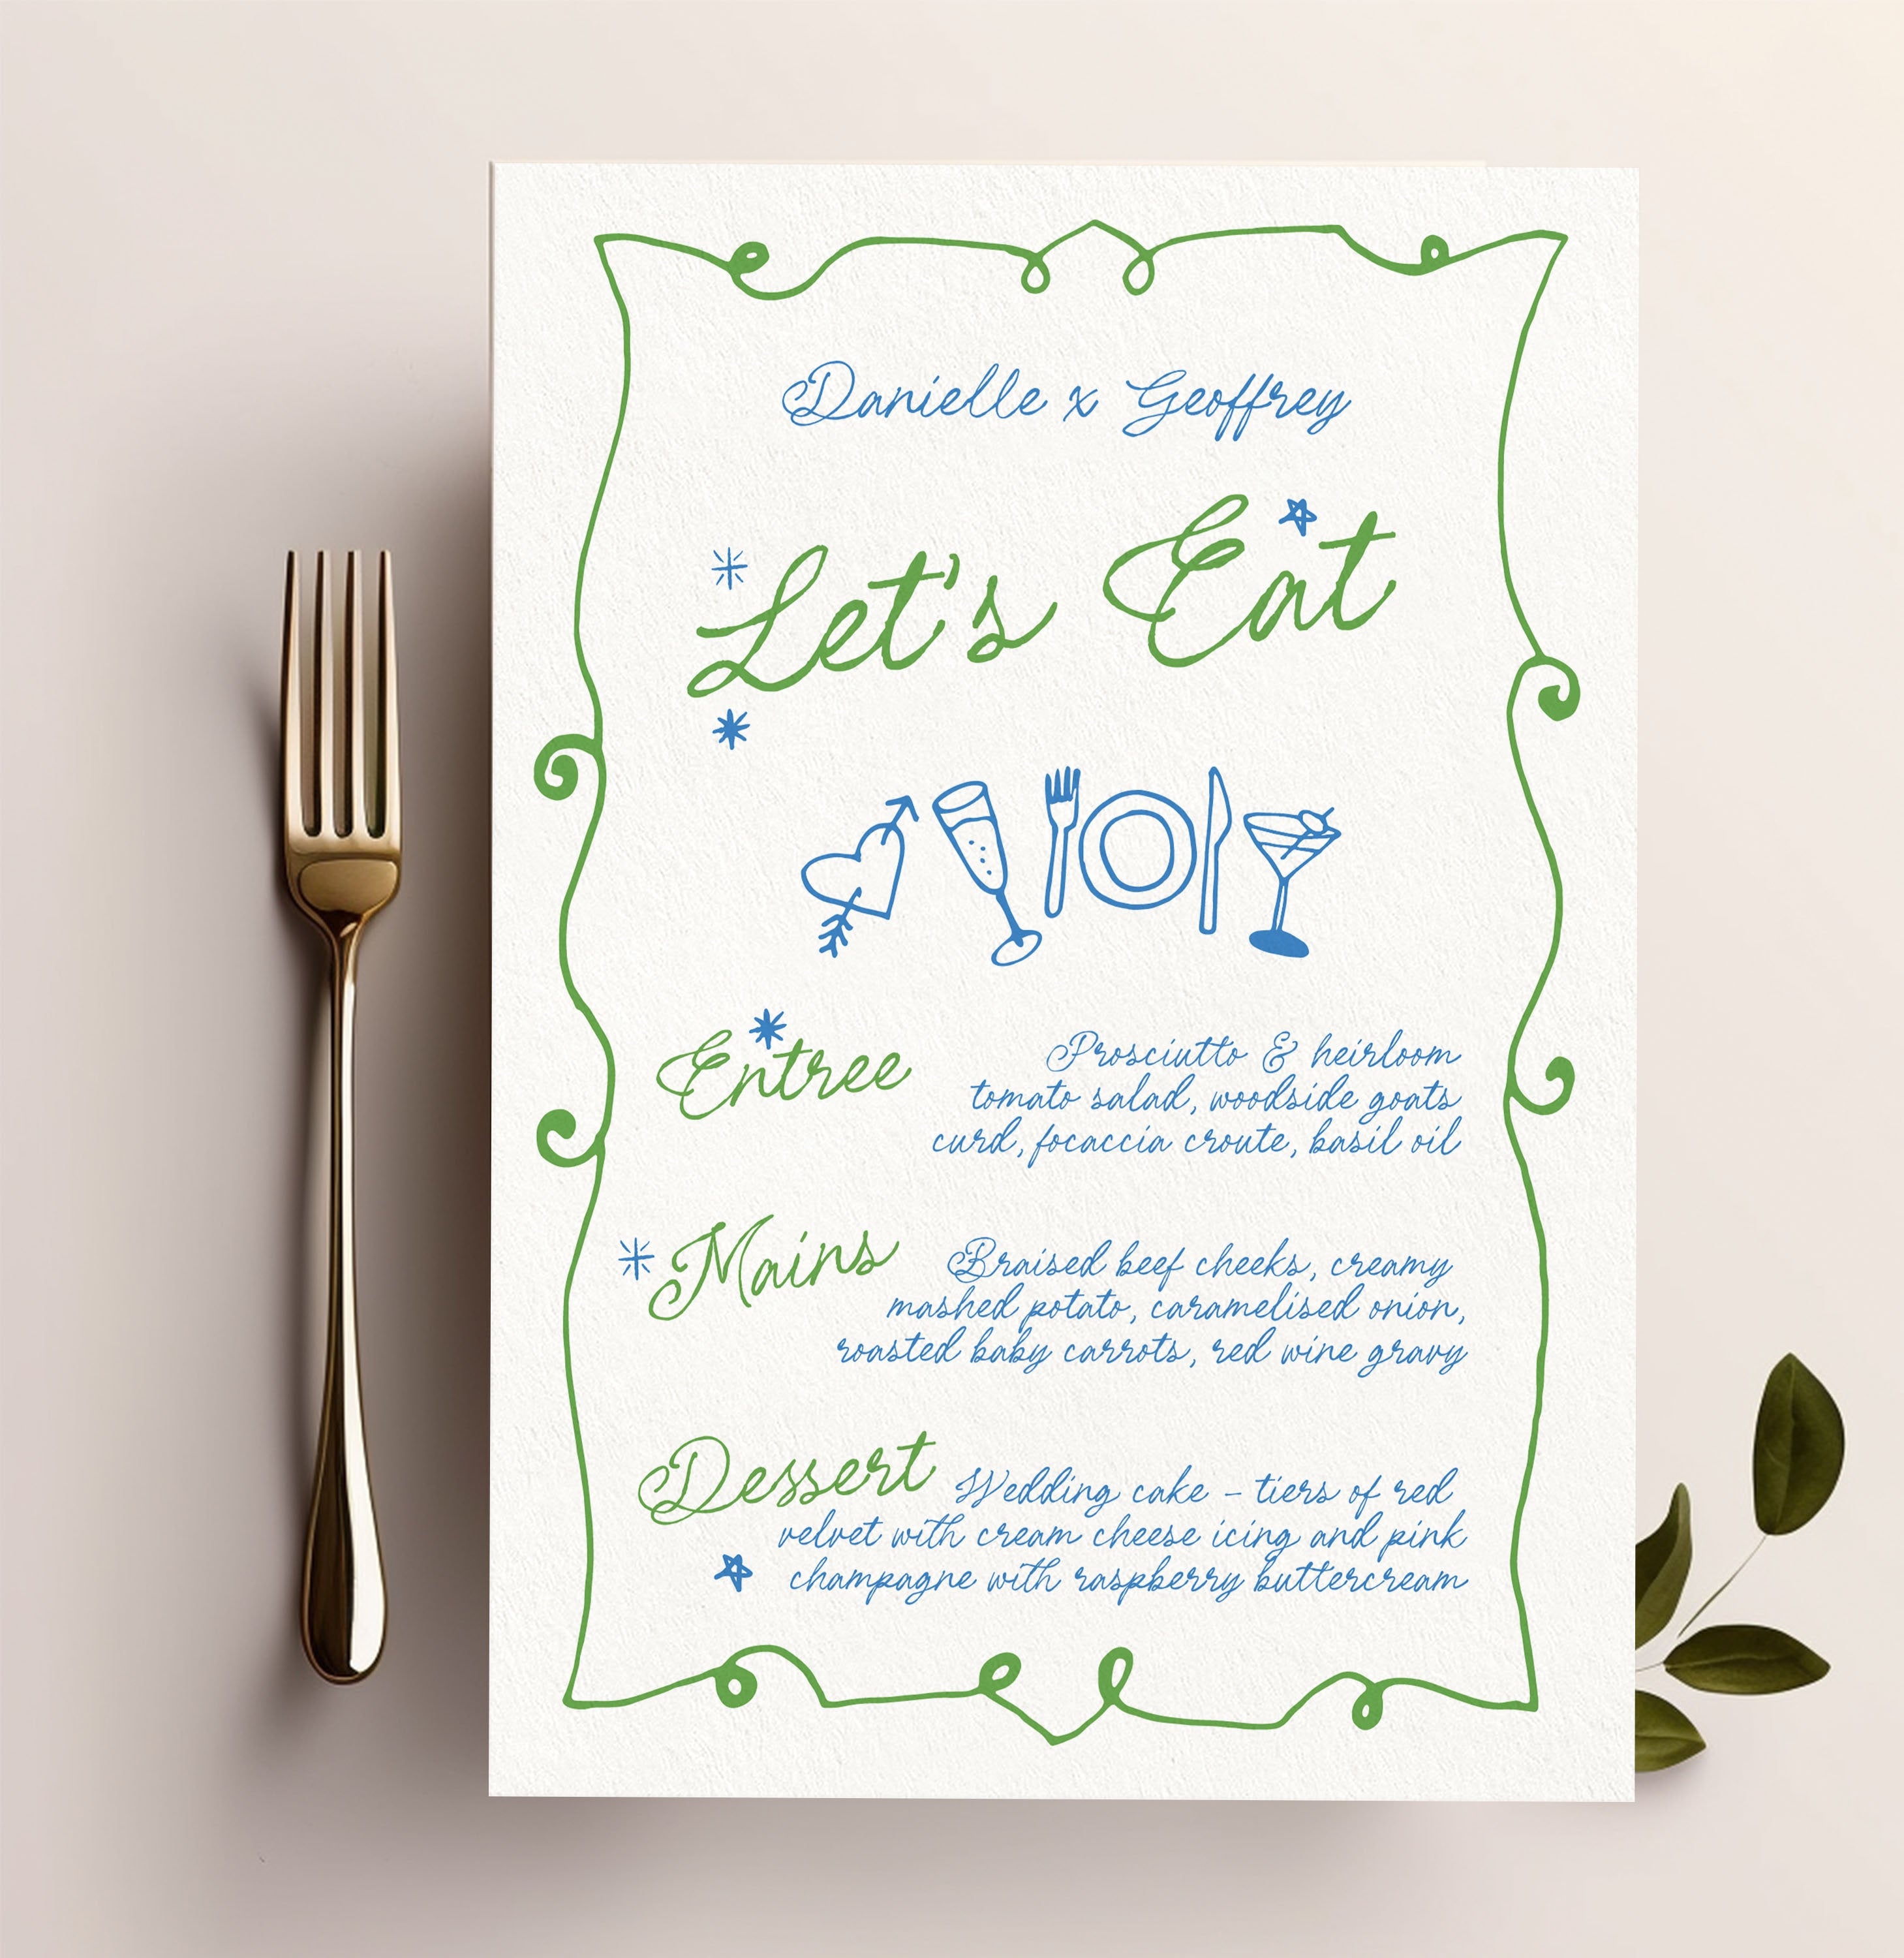 Danielle x Geoffrey
Let's Eat
Entree
Prosciutto & heirloom
tomato salad, woodside goats
curd, focaccia croute, basil oil
Mains
Braised beef cheeks, creamy
mashed potato, caramelised onion,
roasted baby carrots, red wine gravy
Dessert
Wedding cake - tiers of red
velvet with cream cheese icing and pink
champagne with raspberry buttercream